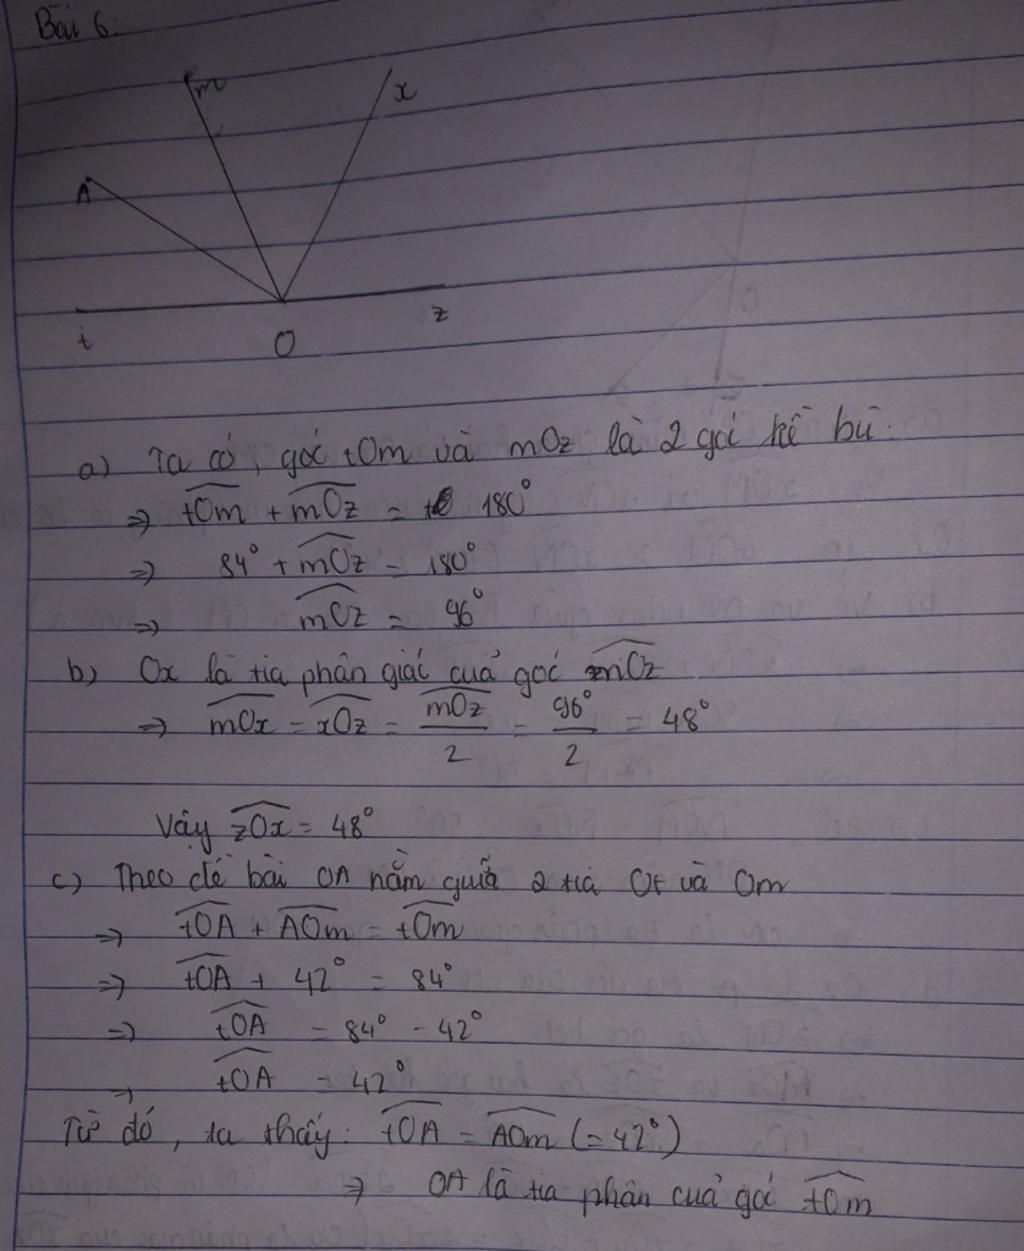 Bài 6:
m
x
A
t
O
z
a) Ta có, góc tOm và mOz là 2 góc kề bù:
=> tOm + mOz = 180°
=> 84° + mOz = 180°
=> mOz = 96°
b) Ox là tia phân giác cuả góc mOz
=> mOx = xOz = mOz/2 = 96°/2 = 48°
Vậy zOx = 48°
c) Theo đề bài OA nằm giữa 2 tia Ot và Om
=> tOA + AOm = tOm
=> tOA + 42° = 84°
=> tOA = 84° - 42°
=> tOA = 42°
Từ đó, ta thấy: tOA = AOm (= 42°)
=> OA là tia phân cuả góc tOm